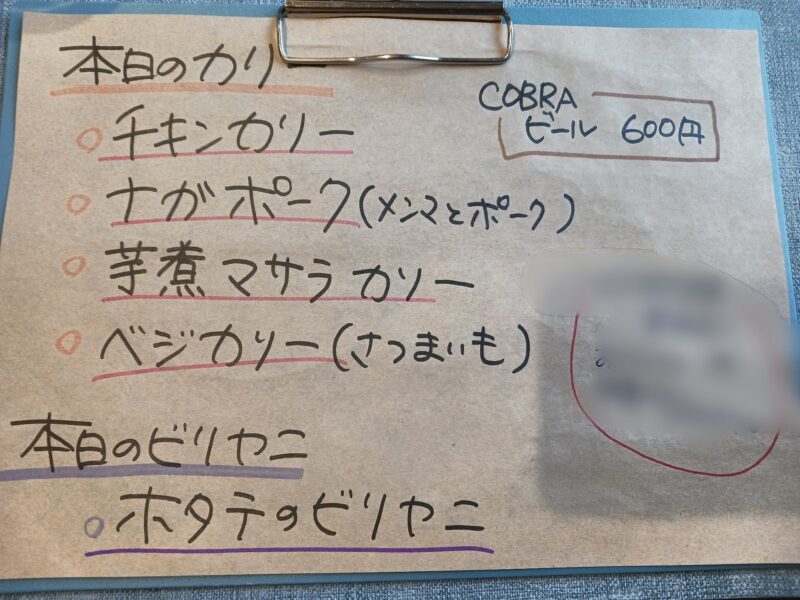 本日のカリー
チキンカリー
ナガポーク(メンマとポーク)
芋煮マサラカリー
ベジカリー(さつまいも)
COBRA
ビール 600円
本日のビリヤニ
ホタテのビリヤニ